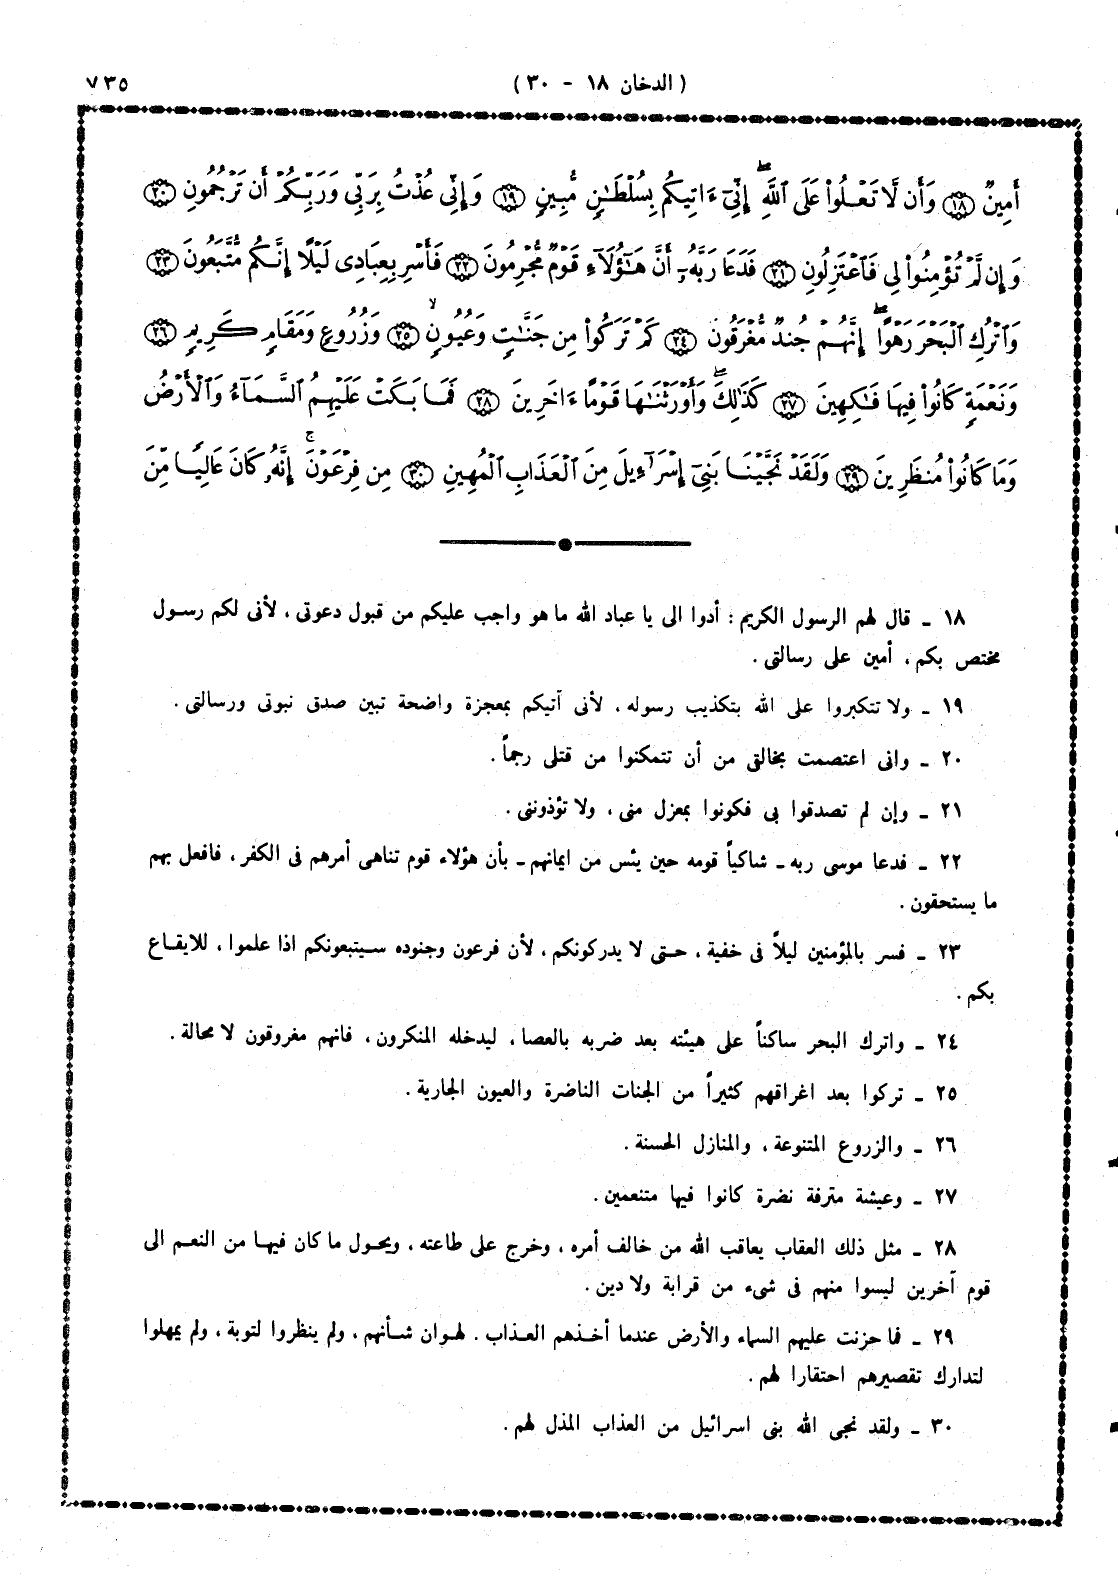 ٧٣٥
( الدخان ١٨ - ٣٠ )
أَمِينٌ ﴿١٨﴾ وَأَن لَّا تَعْلُوا۟ عَلَى ٱللَّهِ ۖ إِنِّىٓ ءَاتِيكُم بِسُلْطَـٰنٍ مُّبِينٍ ﴿١٩﴾ وَإِنِّى عُذْتُ بِرَبِّى وَرَبِّكُمْ أَن تَرْجُمُونِ ﴿٢٠﴾
وَإِن لَّمْ تُؤْمِنُوا۟ لِى فَٱعْتَزِلُونِ ﴿٢١﴾ فَدَعَا رَبَّهُۥٓ أَنَّ هَـٰٓؤُلَآءِ قَوْمٌ مُّجْرِمُونَ ﴿٢٢﴾ فَأَسْرِ بِعِبَادِى لَيْلًا إِنَّكُم مُّتَّبَعُونَ ﴿٢٣﴾
وَٱتْرُكِ ٱلْبَحْرَ رَهْوًا ۖ إِنَّهُمْ جُندٌ مُّغْرَقُونَ ﴿٢٤﴾ كَمْ تَرَكُوا۟ مِن جَنَّـٰتٍ وَعُيُونٍ ۙ ﴿٢٥﴾ وَزُرُوعٍ وَمَقَامٍ كَرِيمٍ ﴿٢٦﴾
وَنَعْمَةٍ كَانُوا۟ فِيهَا فَـٰكِهِينَ ﴿٢٧﴾ كَذَٰلِكَ ۖ وَأَوْرَثْنَـٰهَا قَوْمًا ءَاخَرِينَ ﴿٢٨﴾ فَمَا بَكَتْ عَلَيْهِمُ ٱلسَّمَآءُ وَٱلْأَرْضُ
وَمَا كَانُوا۟ مُنظَرِينَ ﴿٢٩﴾ وَلَقَدْ نَجَّيْنَا بَنِىٓ إِسْرَٰٓءِيلَ مِنَ ٱلْعَذَابِ ٱلْمُهِينِ ﴿٣٠﴾ مِن فِرْعَوْنَ ۚ إِنَّهُۥ كَانَ عَالِيًا مِّنَ
١٨ ـ قال لهم الرسول الكريم : أدوا الى يا عباد الله ما هو واجب عليكم من قبول دعوتى ، لأنى لكم رسول
مختص بكم ، أمين على رسالتى .
١٩ ـ ولا تتكبروا على الله بتكذيب رسوله ، لأنى آتيكم بمعجزة واضحة تبين صدق نبوتى ورسالتى .
٢٠ ـ وانى اعتصمت بخالقى من أن تتمكنوا من قتلى رجماً .
٢١ ـ وإن لم تصدقوا بى فكونوا بمعزل منى ، ولا تؤذوننى .
٢٢ ـ فدعا موسى ربه ـ شاكياً قومه حين يئس من ايمانهم ـ بأن هؤلاء قوم تناهى أمرهم فى الكفر ، فافعل بهم
ما يستحقون .
٢٣ ـ فسر بالمؤمنين ليلاً فى خفية ، حتى لا يدركونكم ، لأن فرعون وجنوده سيتبعونكم اذا علموا ، للايقاع
بكم .
٢٤ ـ واترك البحر ساكناً على هيئته بعد ضربه بالعصا ، ليدخله المنكرون ، فانهم مغروقون لا محالة .
٢٥ ـ تركوا بعد اغراقهم كثيراً من الجنات الناضرة والعيون الجارية .
٢٦ ـ والزروع المتنوعة ، والمنازل الحسنة .
٢٧ ـ وعيشة مترفة نضرة كانوا فيها متنعمين .
٢٨ ـ مثل ذلك العقاب يعاقب الله من خالف أمره ، وخرج على طاعته ، ويحول ما كان فيها من النعم الى
قوم آخرين ليسوا منهم فى شىء من قرابة ولا دين .
٢٩ ـ فما حزنت عليهم السماء والأرض عندما أخذهم العذاب . لهوان شأنهم ، ولم ينظروا لتوبة ، ولم يمهلوا
لتدارك تقصيرهم احتقارا لهم .
٣٠ ـ ولقد نجى الله بنى اسرائيل من العذاب المذل لهم .